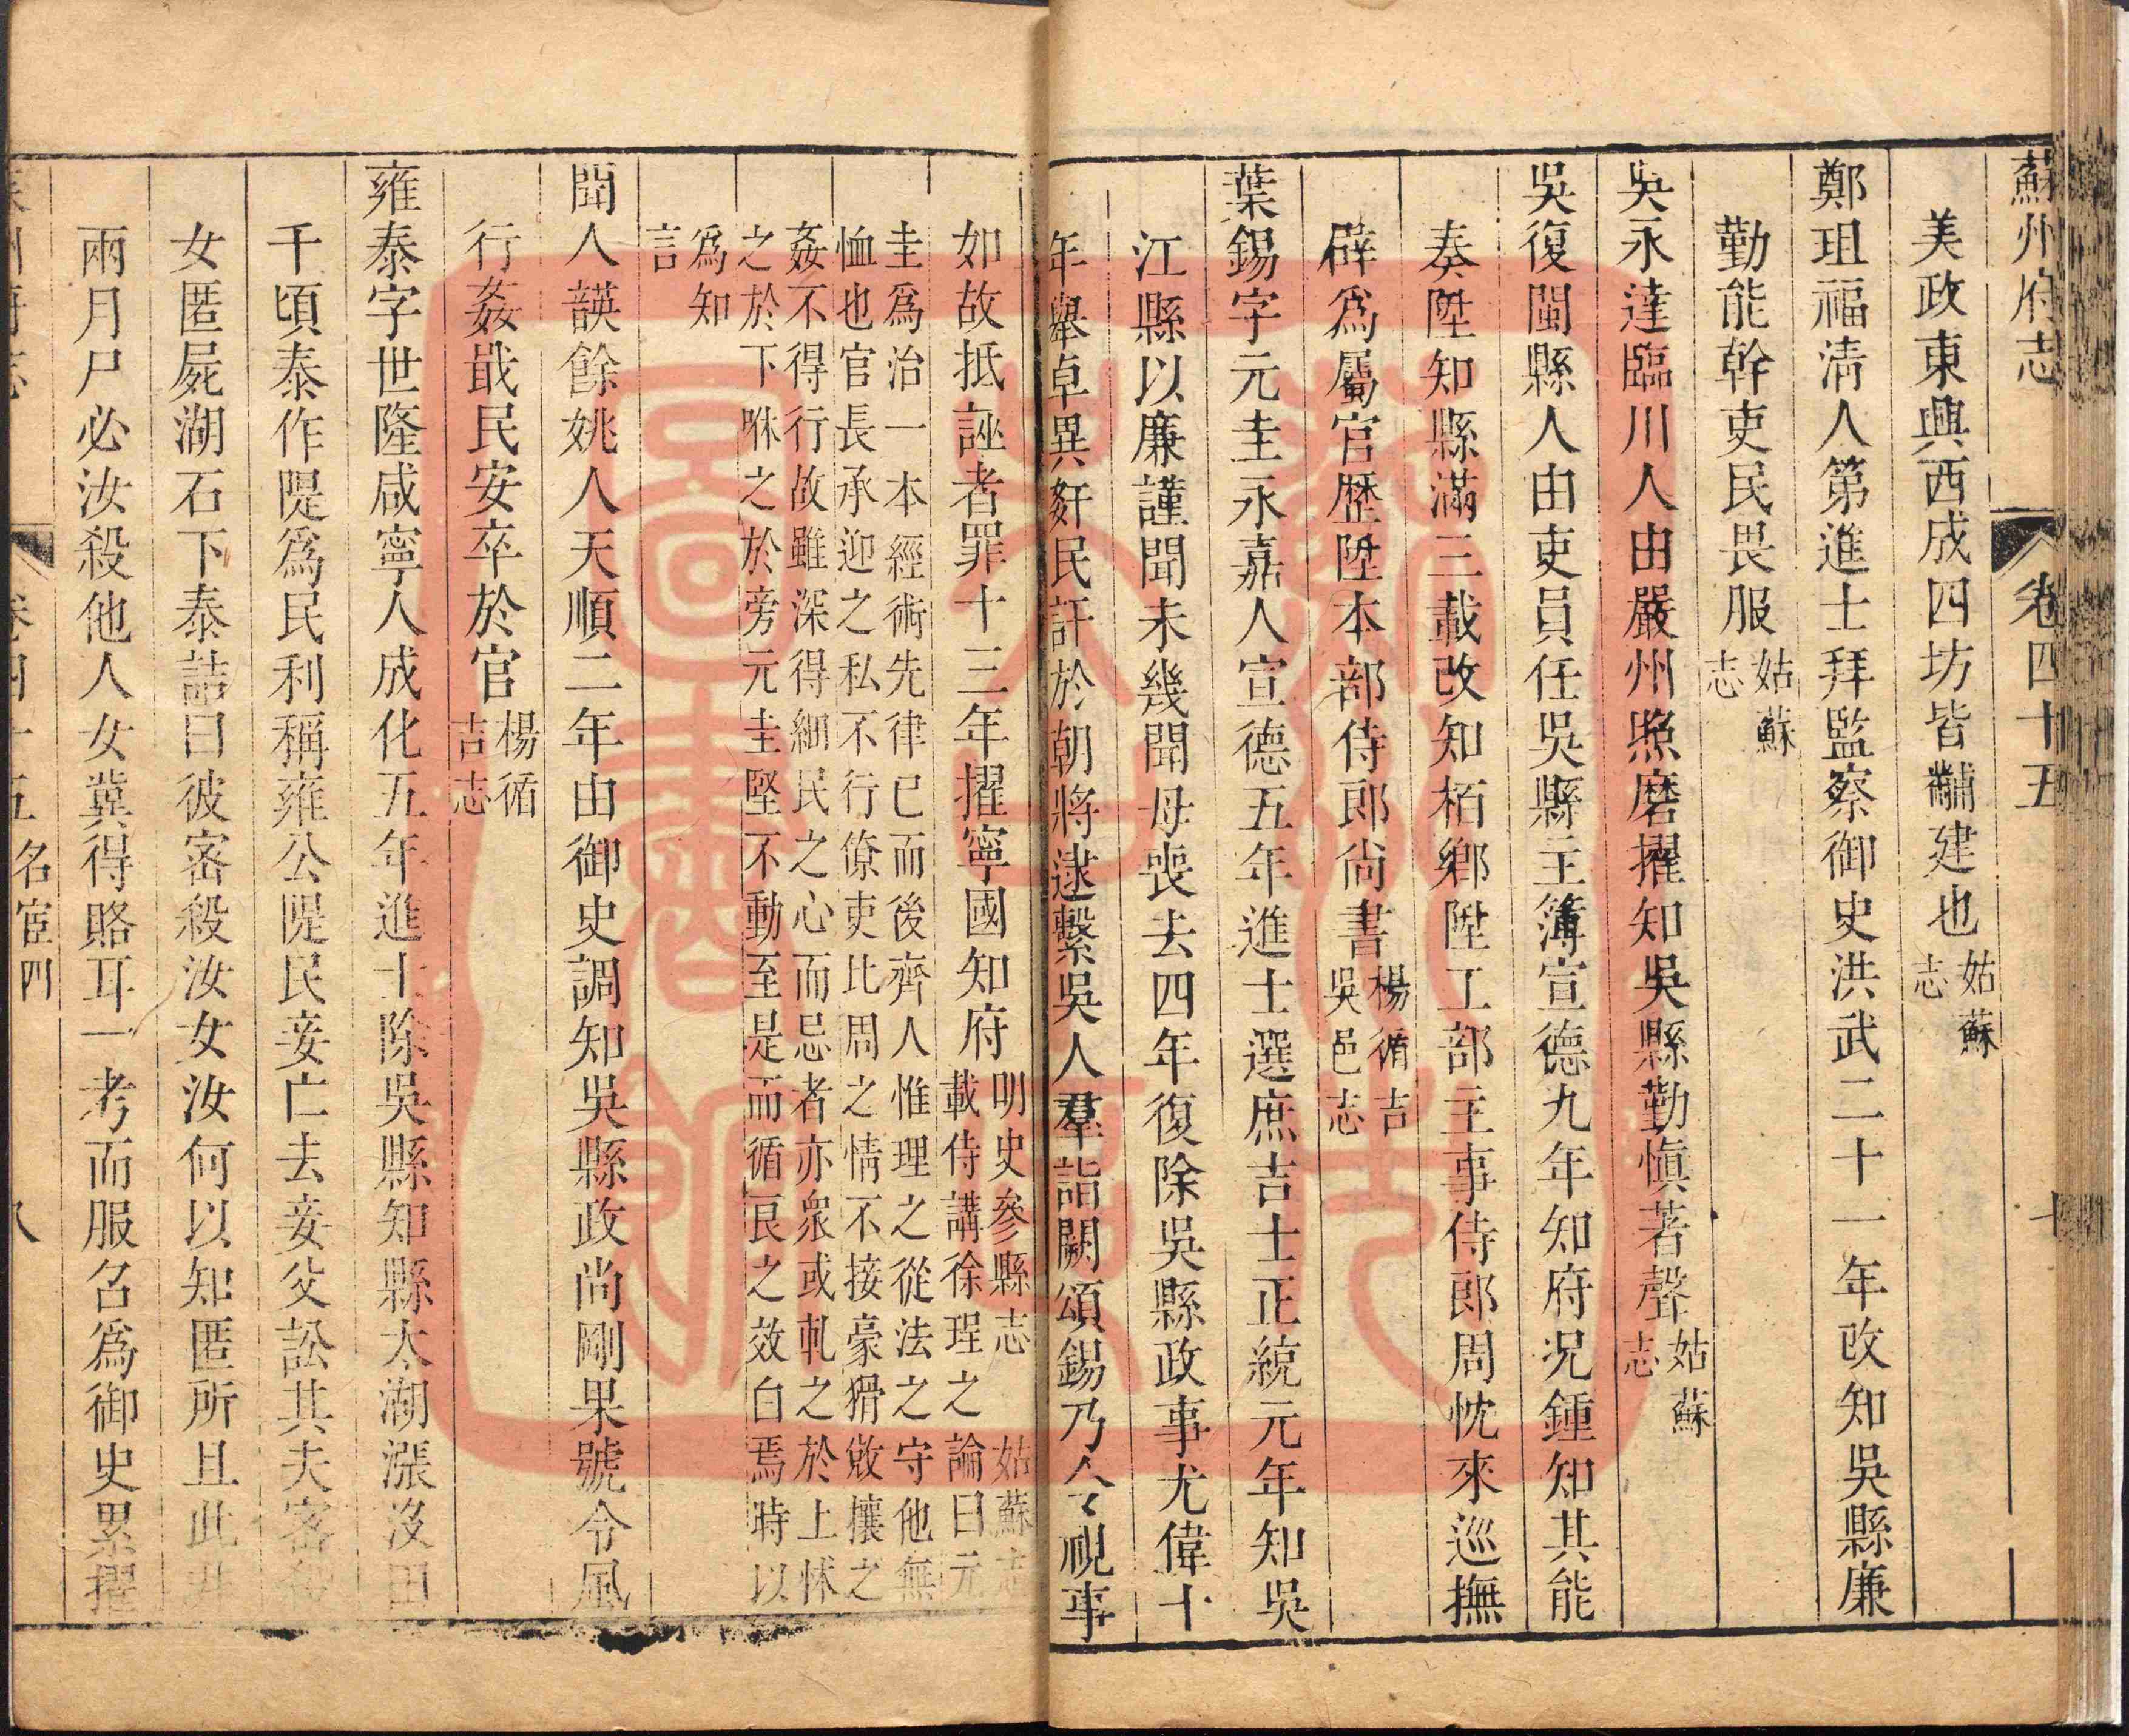 蘇州府志　卷四十五
美政東興西成四坊皆黼建也姑蘇志
鄭珇福淸人第進士拜監察御史洪武二十一年改知吳縣廉
勤能幹吏民畏服姑蘇志
吳永達臨川人由嚴州照磨擢知吳縣勤愼著聲姑蘇志
吳復閩縣人由吏員任吳縣主簿宣德九年知府況鍾知其能
奏陞知縣滿三載改知栢鄉陞工部主事侍郎周忱來巡撫
辟爲屬官歷陞本部侍郎尙書楊循吉吳邑志
葉錫字元圭永嘉人宣德五年進士選庶吉士正統元年知吳
江縣以廉謹聞未幾聞母喪去四年復除吳縣政事尤偉十
年舉卓異奸民訐於朝將逮繫吳人羣詣闕頌錫乃令視事
如故抵誣者罪十三年擢寧國知府明史參縣志　姑蘇志
載侍講徐珵之論曰元
圭爲治一本經術先律已而後齊人惟理之從法之守他無
恤也官長承迎之私不行僚吏比周之情不接豪猾斂攘之
姦不得行故雖深得細民之心而忌者亦衆或軋之於上怵
之於下咻之於旁元圭堅不動至是而循良之效白焉時以
爲知
言
聞人韺餘姚人天順二年由御史調知吳縣政尙剛果號令風
行姦戢民安卒於官楊循吉志
雍泰字世隆咸寧人成化五年進士除吳縣知縣太湖漲沒田
千頃泰作隄爲民利稱雍公隄民妾亡去妾父訟其夫密殺
女匿屍湖石下泰詰曰彼密殺汝女汝何以知匿所且此非
兩月尸必汝殺他人女冀得賂耳一考而服召爲御史累擢
卷四十五　名宦四　八